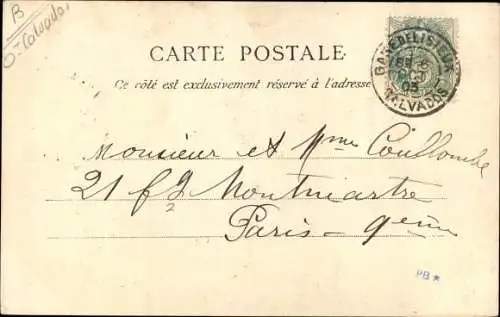 B
O-Calvados
CARTE POSTALE
Ce côté est exclusivement réservé à l'adresse
GARE DE LISIEUX
OCT
03
CALVADOS
Monsieur et Mme Coullombe
21 fg Montmartre
Paris - 9eme
PB*